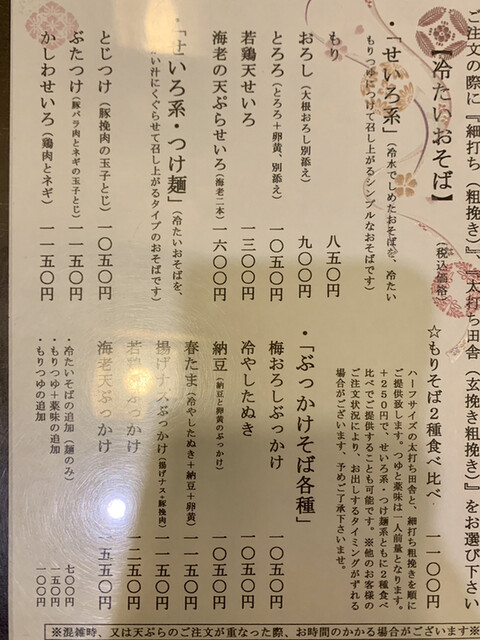 ご注文の際に『細打ち(粗挽き)』、『太打ち田舎(玄挽き粗挽き)』をお選び下さい
【冷たいおそば】(税込価格)
・「せいろ系」(冷水でしめたおそばを、冷たい
もりつゆにつけて召し上がるシンプルなおそばです)
もり 八五〇円
おろし(大根おろし別添え) 九〇〇円
とろろ(とろろ+卵黄、別添え) 一〇五〇円
若鶏天せいろ 一三〇〇円
海老の天ぷらせいろ(海老二本) 一六〇〇円
・「せいろ系・つけ麺」(冷たいおそばを、
い汁にくぐらせて召し上がるタイプのおそばです)
とじつけ(豚挽肉の玉子とじ) 一〇五〇円
ぶたつけ(豚バラ肉とネギの玉子とじ) 一一五〇円
かしわせいろ(鶏肉とネギ) 一一五〇円
☆もりそば2種食べ比べ 一一〇〇円
ハーフサイズの太打ち田舎と、細打ち粗挽きを順に
ご提供致します。つゆと薬味は一人前量となります。
+250円で、せいろ系・つけ麺系ともに2種食べ
比べでご提供することも可能です。※他のお客様の
ご注文状況により、お出しするタイミングがずれる
場合がございます、予めご了承下さいませ。
・「ぶっかけそば各種」
梅おろしぶっかけ 一〇五〇円
冷やしたぬき 一〇五〇円
納豆(納豆と卵黄のぶっかけ) 一〇五〇円
春たま(冷やしたぬき+納豆+卵黄) 一一五〇円
揚げナスぶっかけ(揚げナス・豚挽肉) 一一五〇円
若鶏天ぶっかけ 一二五〇円
海老天ぶっかけ 一五五〇円
・冷たいそばの追加(麺のみ) 七〇〇円
・もりつゆ+薬味の追加 一五〇円
・もりつゆの追加 一〇〇円
※混雑時、又は天ぷらのご注文が重なった際、お時間のかかる場合がございます※